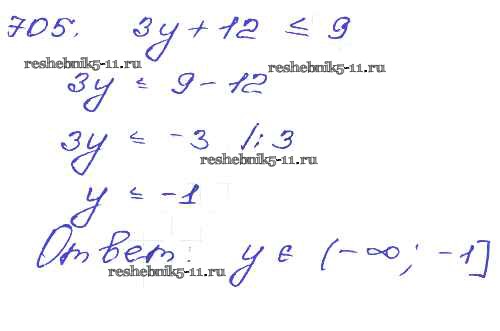 705. 3y + 12 ≤ 9
reshebnik5-11.ru
reshebnik5-11.ru
3y ≤ 9 - 12
3y ≤ -3 /: 3
reshebnik5-11.ru
y ≤ -1
Ответ: y ∈ (-∞; -1]
reshebnik5-11.ru